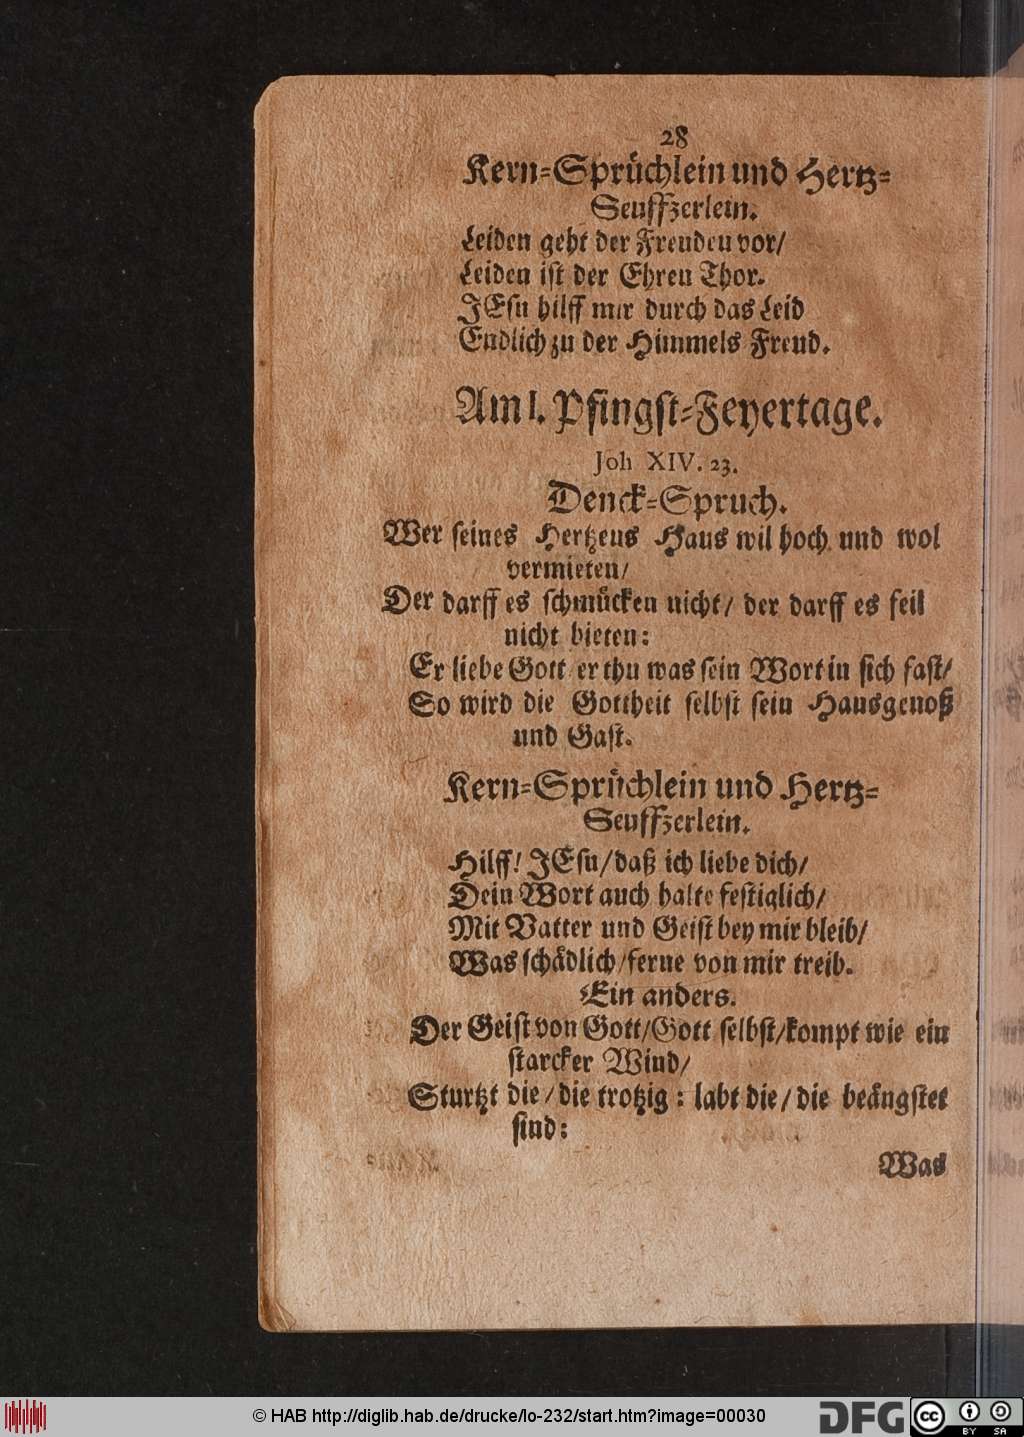 28
Kern-Sprüchlein und Hertz-
Seuffzerlein.
Leiden geht der Freuden vor/
Leiden ist der Ehren Thor.
JEsu hilff mir durch das Leid
Endlich zu der Himmels Freud.
Am I. Pfingst-Feyertage.
Joh XIV. 23.
Denck-Spruch.
Wer seines Hertzens Haus wil hoch und wol
vermieten/
Der darff es schmücken nicht/ der darff es feil
nicht bieten:
Er liebe Gott/ er thu was sein Wort in sich fast/
So wird die Gottheit selbst sein Hausgenoß
und Gast.
Kern-Sprüchlein und Hertz-
Seuffzerlein.
Hilff! JEsu/ daß ich liebe dich/
Dein Wort auch halte festiglich/
Mit Vatter und Geist bey mir bleib/
Was schädlich/ ferne von mir treib.
Ein anders.
Der Geist von Gott/ Gott selbst/ kompt wie ein
starcker Wind/
Sturtzt die/ die trotzig: labt die/ die beängstet
sind:
Was
© HAB http://diglib.hab.de/drucke/lo-232/start.htm?image=00030
DFG
cc
BY SA